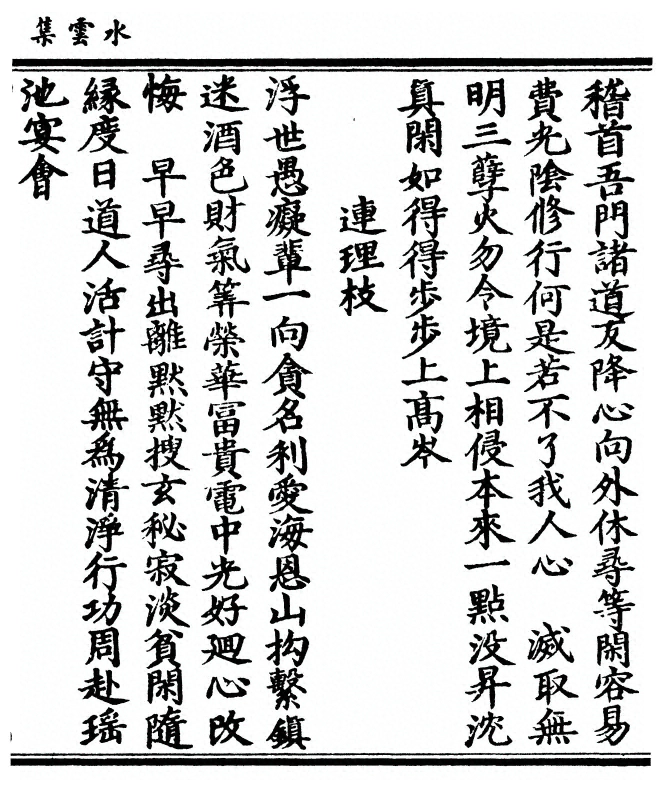 水雲集
稽首吾門諸道友降心向外休尋等閑容易
費光陰修行何是若不了我人心　滅取無
明三孽火勿令境上相侵本來一點没昇沈
真閑如得得步步上高岑
連理枝
浮世愚癡輩一向貪名利愛海恩山拘繫鎮
迷酒色財氣筭榮華富貴電中光好迴心改
悔　早早尋出離默默搜玄秘寂淡貧閑隨
緣度日道人活計守無爲清淨行功周赴瑶
池宴會